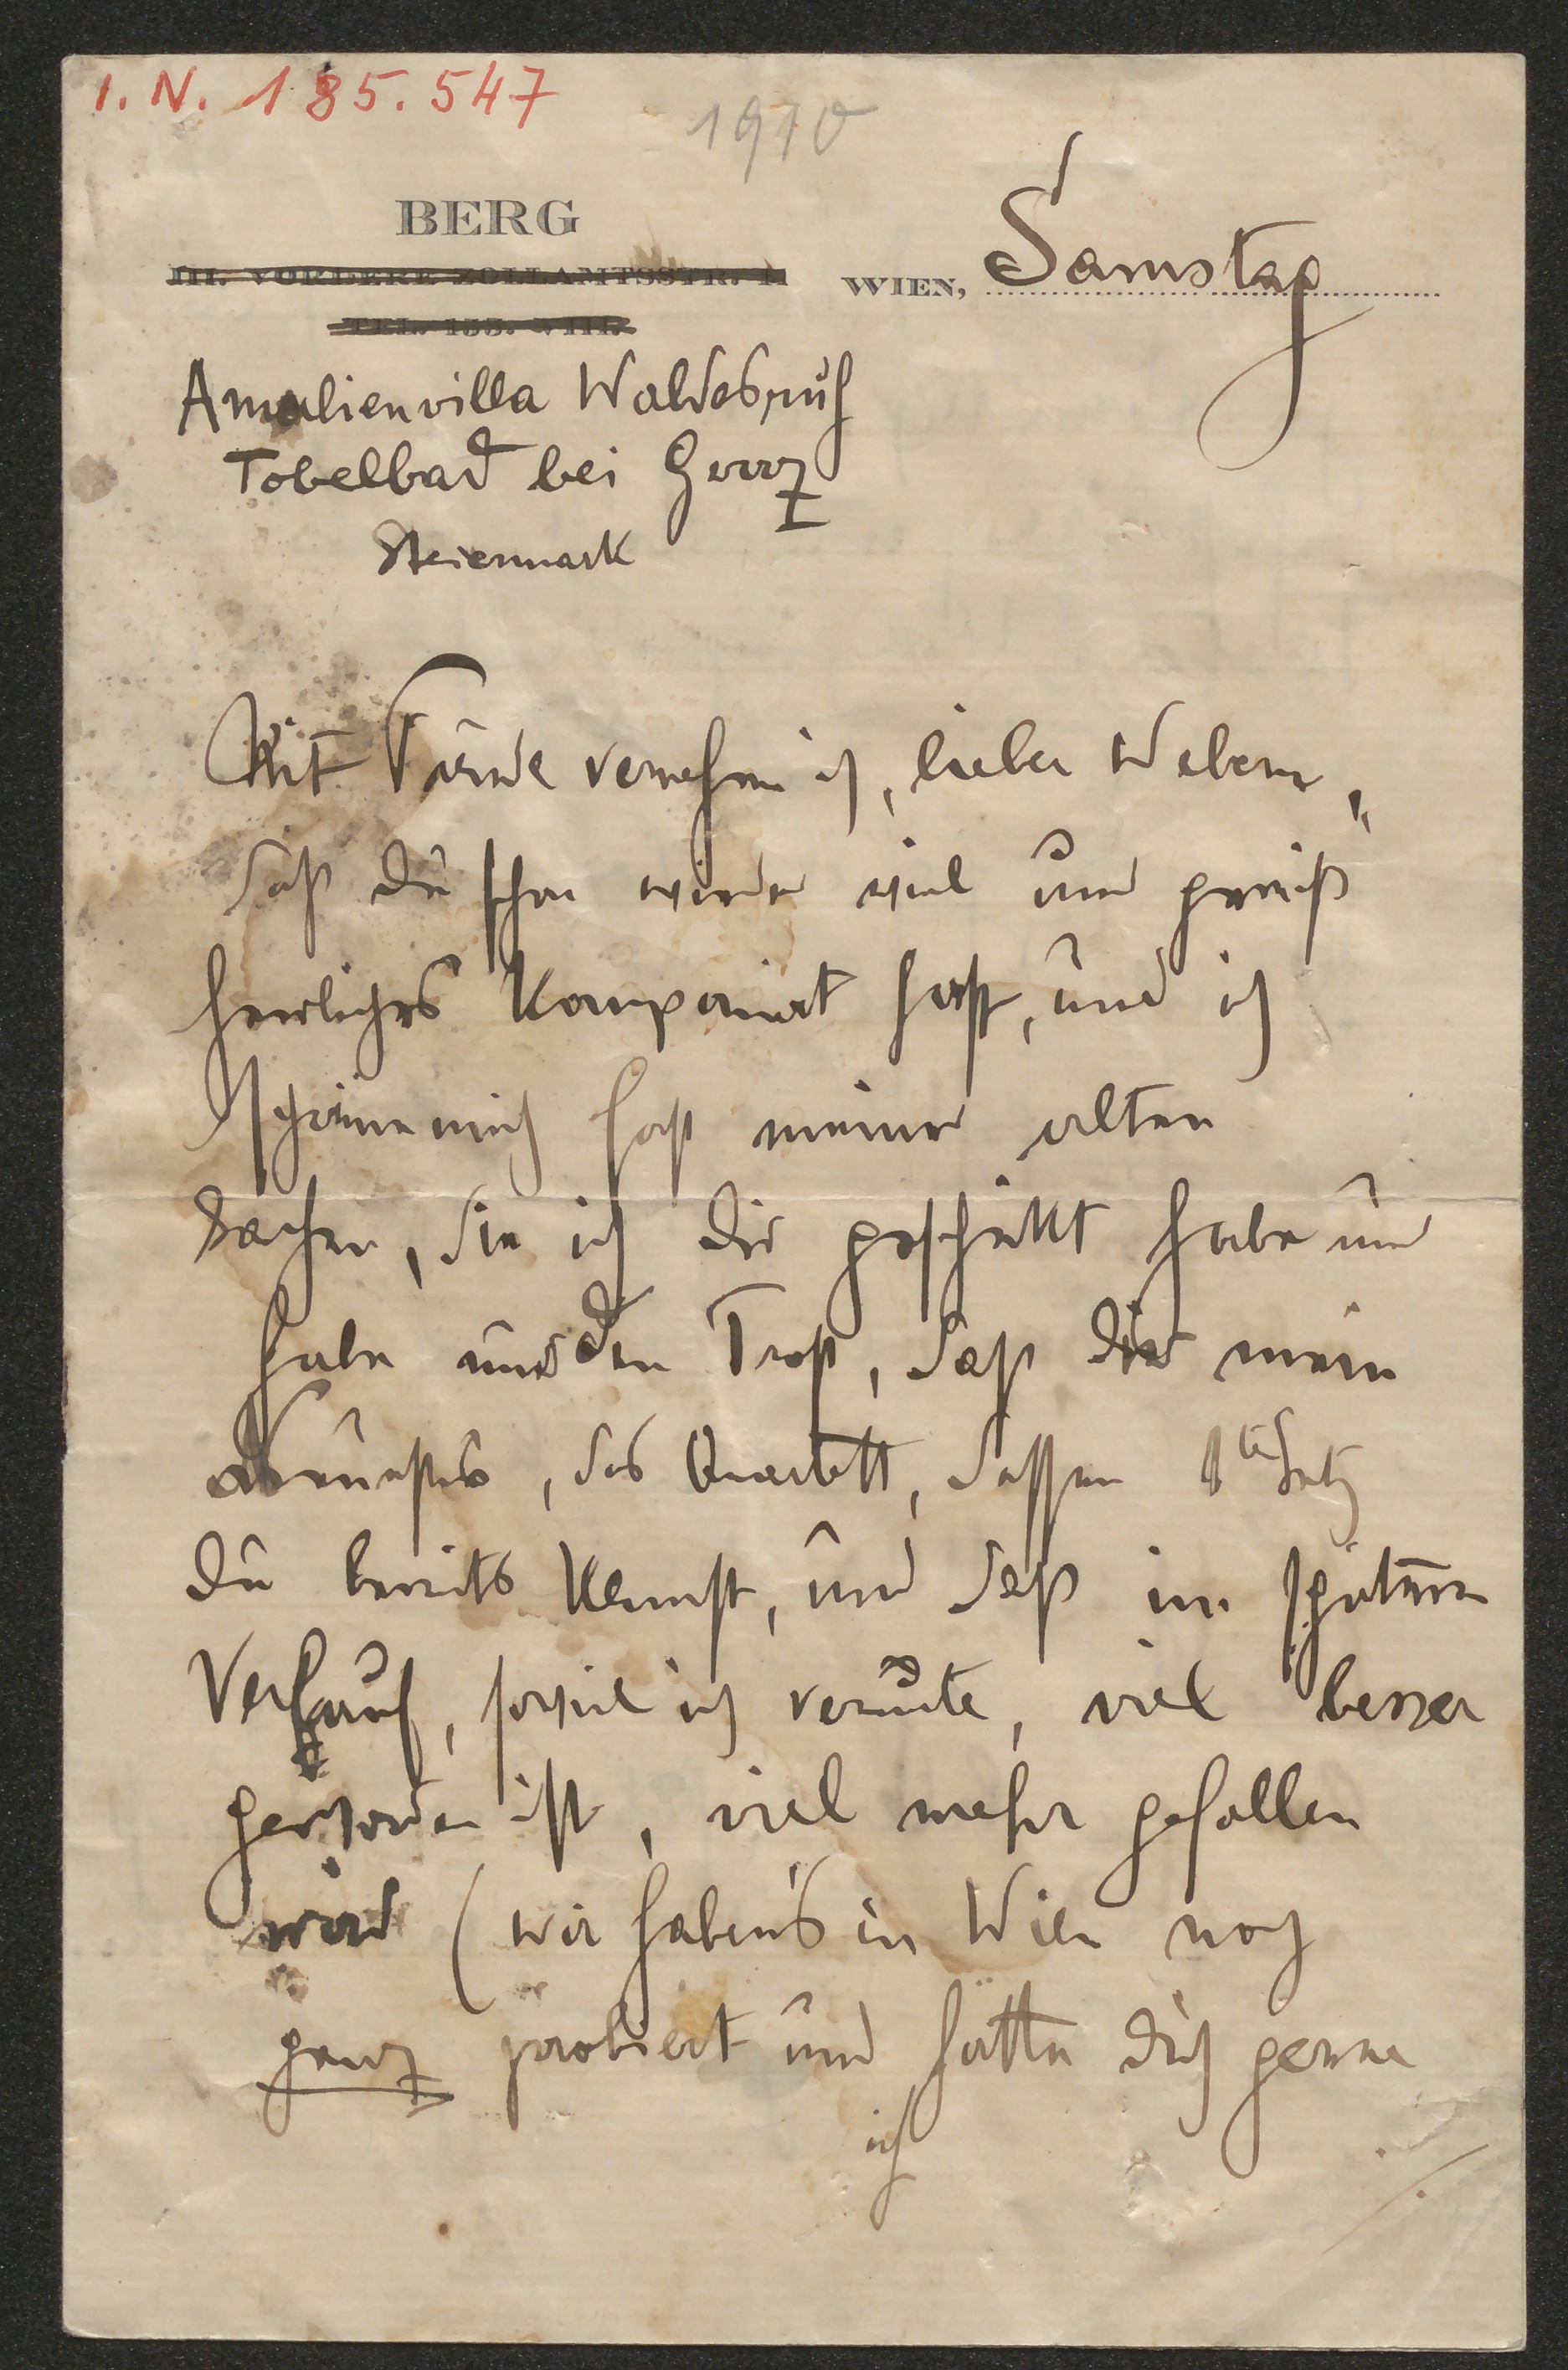 I. N. 185.547
1910
BERG
III. VORDERE ZOLLAMTSSTR. 11
TEL. 133. VIII.
WIEN, Samstag
Amalienvilla Waldesruh
Tobelbad bei Graz
Steiermark
Mit Freude vernehm ich, lieber Webern,
daß du schon wieder viel und gewiß
herrliches komponiert hast, und ich
schäme mich fast meiner alten
Sachen, die ich dir geschickt habe und
habe nur den Trost, daß dir mein
Neuestes, das Quartett, dessen 1ten Satz
du bereits kennst, und daß im spätern
Verlauf, soviel ich vermute, viel besser
geworden ist, viel mehr gefallen
wird (wir haben's in Wien noch
ganz probiert und hätte dich gerne
ich